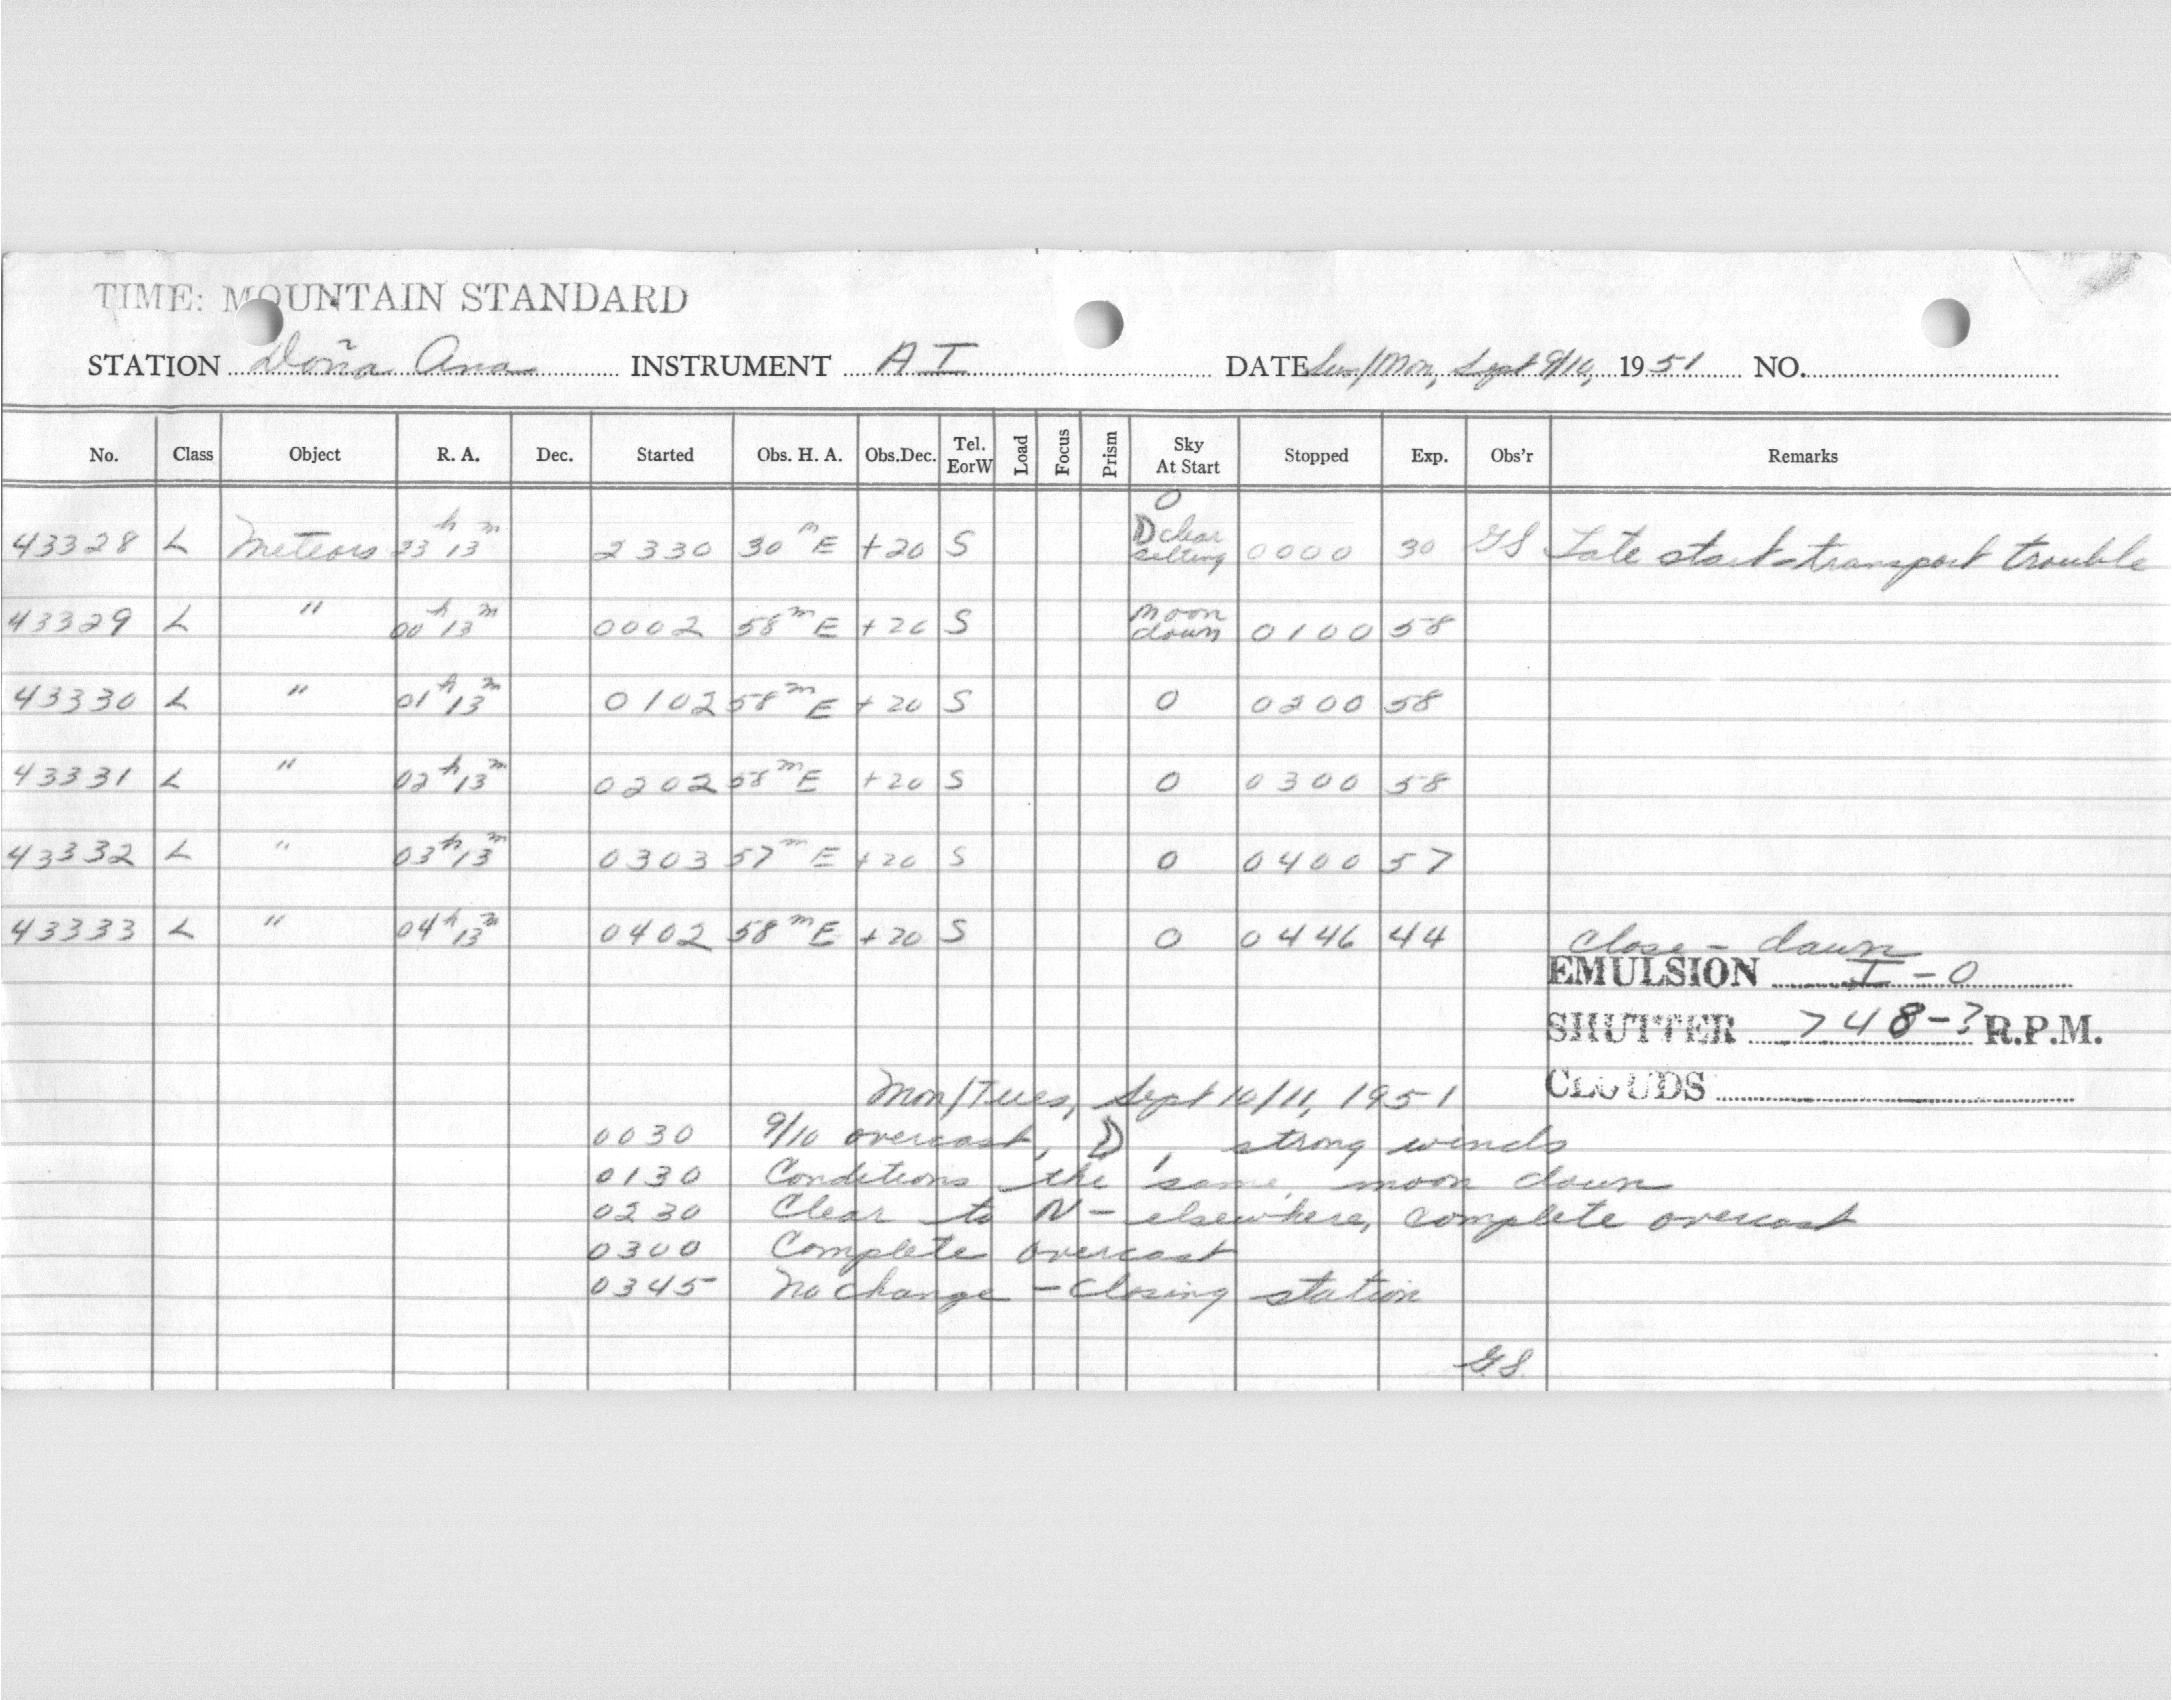 TIME: MOUNTAIN STANDARD
STATION Doña Ana INSTRUMENT AI DATE Sun/Mon, Sept 9/10, 1951 NO.
No. Class Object R. A. Dec. Started Obs. H. A. Obs.Dec. Tel. EorW Load Focus Prism Sky At Start Stopped Exp. Obs'r Remarks
43328 L Meteors 23h 13m 2330 30m E +20 S 0 D clear setting 0000 30 GS Late start-transport trouble
43329 L " 00h 13m 0002 58m E +20 S moon down 0100 58
43330 L " 01h 13m 0102 58m E +20 S 0 0200 58
43331 L " 02h 13m 0202 58m E +20 S 0 0300 58
43332 L " 03h 13m 0303 57m E +20 S 0 0400 57
43333 L " 04h 13m 0402 58m E +20 S 0 0446 44 Close - dawn
EMULSION I-0
SHUTTER >48-? R.P.M.
CLOUDS
Mon/Tues, Sept 10/11, 1951
0030 9/10 overcast, D, strong winds
0130 Conditions the same, moon down
0230 Clear to N - elsewhere, complete overcast
0300 Complete overcast
0345 No change - Closing station
GS